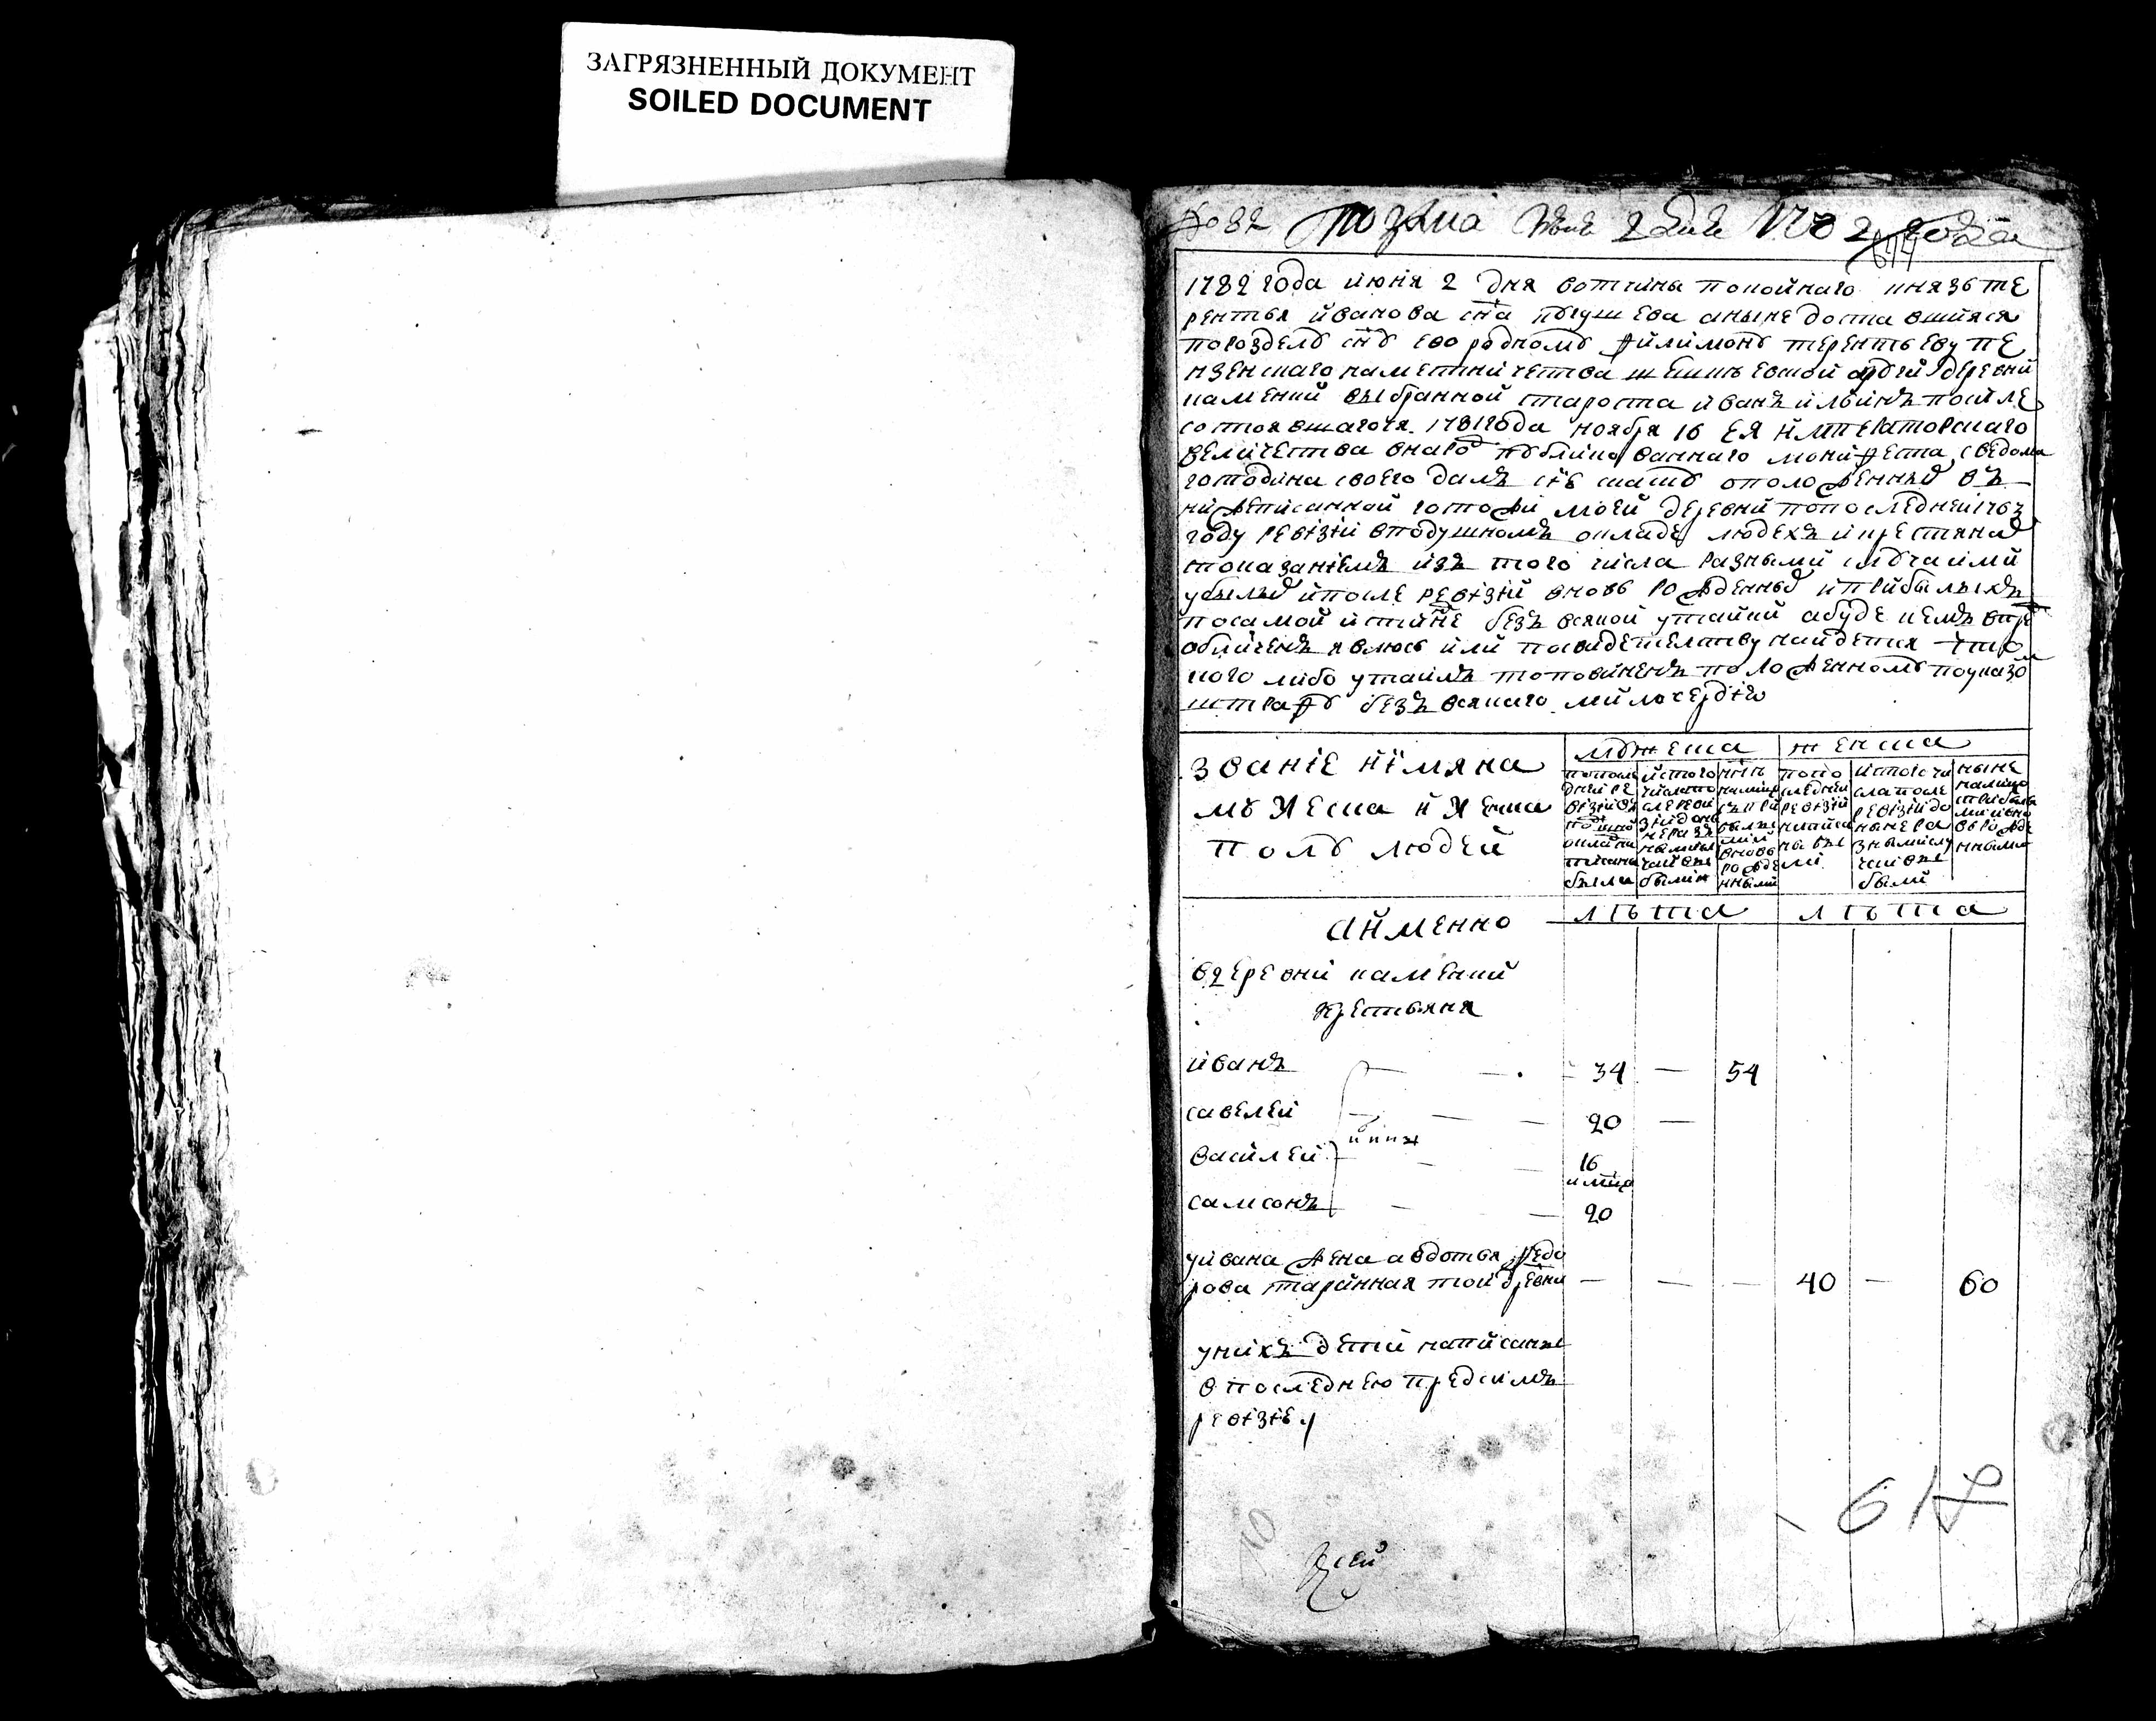 ЗАГРЯЗНЕННЫЙ ДОКУМЕНТ
SOILED DOCUMENT
1782 года
1782 года июня 2 дня вотчины покойнаго князь те
рентья иванова сна аныне доставшияся
поразделу сну ево родному филимону терентьеву пе
нзенскаго наместничества деревни
каменки выбранной староста иванъ ильинъ после
состоявшагося 1781 года ноября 16 ея императорскаго
величества онаго публикованнаго манифеста сведома
господина своего далъ сию скаску о положенныхъ въ
нижеписанной госпожи моей деревни попоследней 1763
году ревизии вподушномъ окладе людехъ икрестянах
спуказаниемъ изъ того числа разными случаими
убылых ипосле ревизии вновь рожденных иприбылыхъ
посамой истинне безъ всякой утайки абуде кемъ впре
обличенъ явлюсь или посвидетелству найдется что
кого либо утаилъ топовиненъ положенному поуказо
штрафу безъ всякаго милосердия
звание иимяна
мужеска иженска
полу людей
мужеска
женска
попосле
дней ре
визии въ
подушно
окладе на
писано
были
ис того
числа по
сле реви
зии до ны
не разъ
ными слу
чаи вы
были
нынъ
налицо
съ при
былы
ми и
вновь
рожде
нными
попо
следней
ревизии
написа
ны бы
ли
истого чи
сла после
ревизии до
ныне ра
зными слу
чаи вы
были
ныне
налицо
сприбылы
ми ивно
вь рожде
нными
лѣта
лѣта
аименно
вдеревни каменки
крестьяня
иванъ 34 — 54
савелей 20 —
василей 16
самсонъ 20
уивана жена авдотья федо
рова старинная тои древни — — — 40 — 60
унихъ дети написаны
впоследнею предсимъ
ревизиею
617